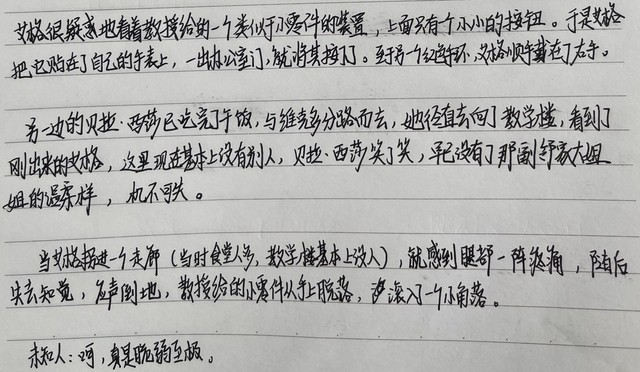 艾格很疑惑地看着教授给的一个类似于小零件的装置，上面只有个小小的按钮。于是艾格
把它贴在了自己的手表上，一出办公室门，就将其按了。至于另一个红色手环，艾格顺手戴在了右手。
另一边的贝拉·西莎已吃完了午饭，与维克多分路而去，她径直去向了教学楼，看到了
刚出来的艾格，这里现在基本上没有别人，贝拉·西莎笑了笑，早已没有了那副舒家大姐
姐的温柔样，机不可失。
当艾格拐进一个走廊（当时食堂人多，教学楼基本上没人），就感到腿部一阵疼痛，随后
失去知觉，应声倒地，教授给的小零件从手上脱落，滚入了一个小角落。
未知人：呵，真是脆弱至极。